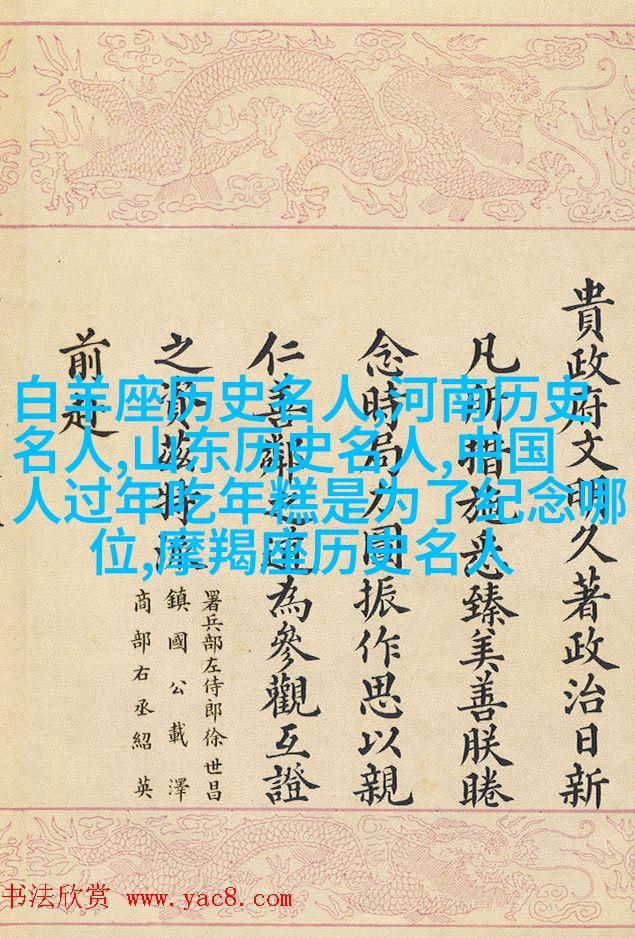 貴政府文明久著政治日新
凡所措施悉臻美善朕睠
念時局力圖振作思以親
仁善鄰之道為參觀互證
之資茲特派
署兵部左侍郎徐世昌
鎮國公載澤
商部右丞紹英
前赴
白羊座历史名人,河南历史
名人,山东历史名人,中国
人过年吃年糕是为了纪念哪
位,摩羯座历史名人
书法欣赏 www.yac8.com